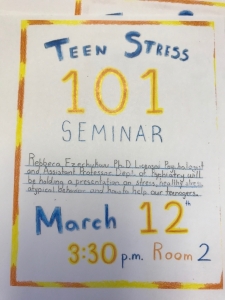 TEEN STRESS
101
SEMINAR
Rebbeca Ezechukwu Ph.D. Licensed Psychologist
and Assistant Professor Dept. of Psychiatry will
be holding a presentation on stress, healthy stress
atypical behavior and how to help our teenagers.
March 12th
3:30 p.m. Room 2